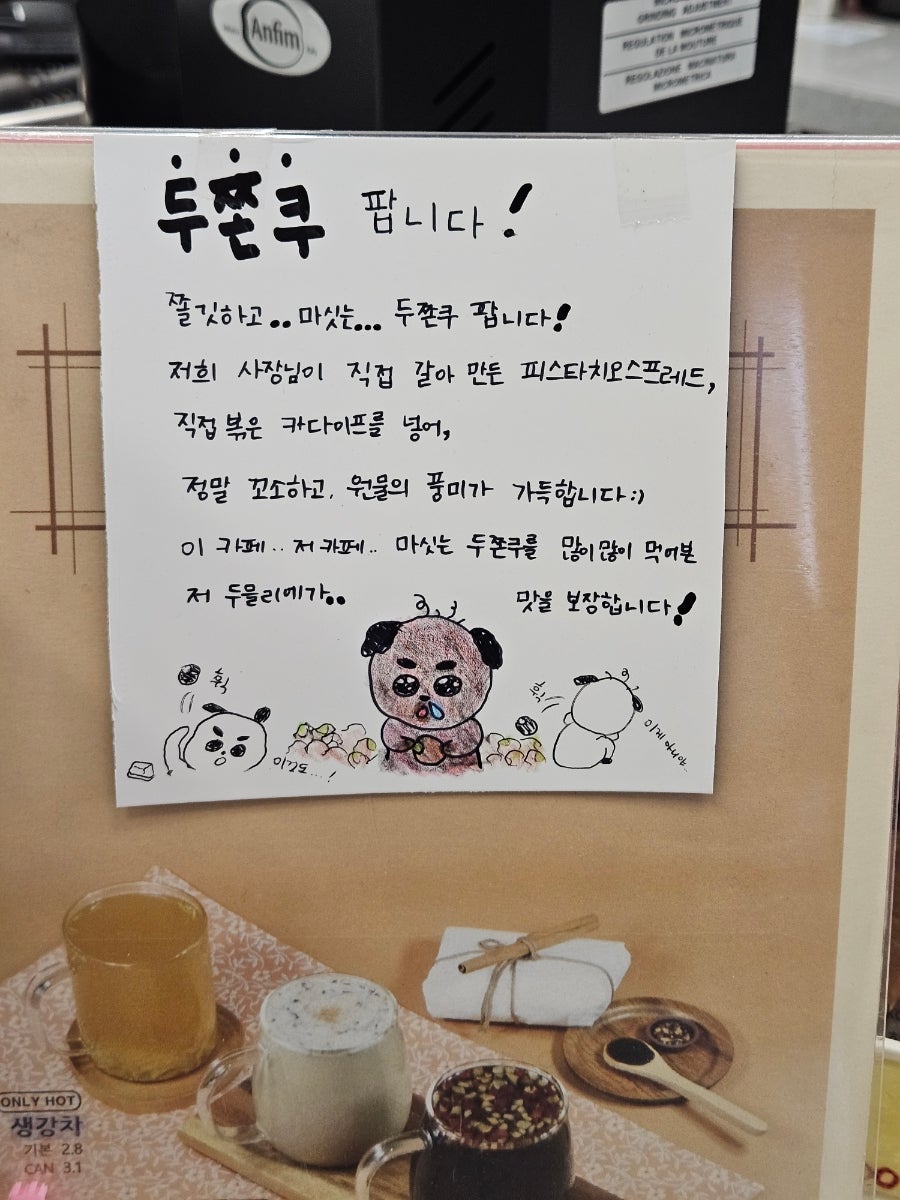 Anfim
GRINDING ADJUSTMENT
REGULATION MICROMETRIQUE
DE LA MOUTURE
REGOLAZIONE MACINATURA
MICROMETRICA
두쫀쿠 팝니다!
쫄깃하고.. 마싯는... 두쫀쿠 팝니다!
저희 사장님이 직접 갈아 만든 피스타치오스프레드,
직접 볶은 카다이프를 넣어,
정말 꼬소하고, 원물의 풍미가 가득합니다:)
이 카페.. 저 카페.. 마싯는 두쫀쿠를 많이많이 먹어본
저 두물리에가.. 맛을 보장합니다!
획
획
이것도...!
이게 아니야..
ONLY HOT
생강차
기본 2.8
CAN 3.1